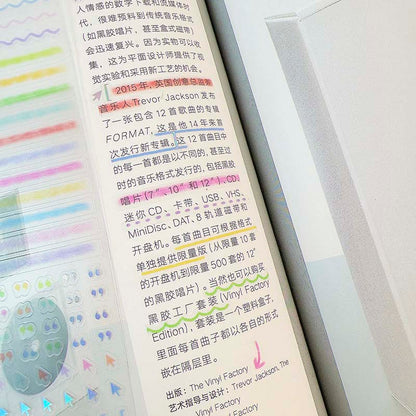 人情感的数字下载和流媒体时
代，很难预料到传统音乐格式
（如黑胶唱片，甚至盒式磁带）
会迅速复兴。因为实物可以收
集，这为平面设计师提供了视
觉实验和采用新工艺的机会。
2015年，英国创意总监兼
音乐人Trevor Jackson发布
了一张包含12首歌曲的专辑
FORMAT，这是他14年来首
次发行新专辑。这12首曲目中
的每一首都是以不同的，甚至过
时的音乐格式发行的，包括黑胶
唱片（7"、10" 和 12"）、CD、
迷你CD、卡带、USB、VHS、
MiniDisc、DAT、8轨道磁带和
开盘机。每首曲目可根据格式
单独提供限量版（从限量10套
的开盘机到限量500套的12"
的黑胶唱片）。当然也可以购买
黑胶工厂套装［Vinyl Factory
Edition］，套装是一个塑料盒子，
里面每首曲子都以各自的形式
嵌在隔层里。
出版：The Vinyl Factory
艺术指导与设计：Trevor Jackson, The
Vinyl Factory